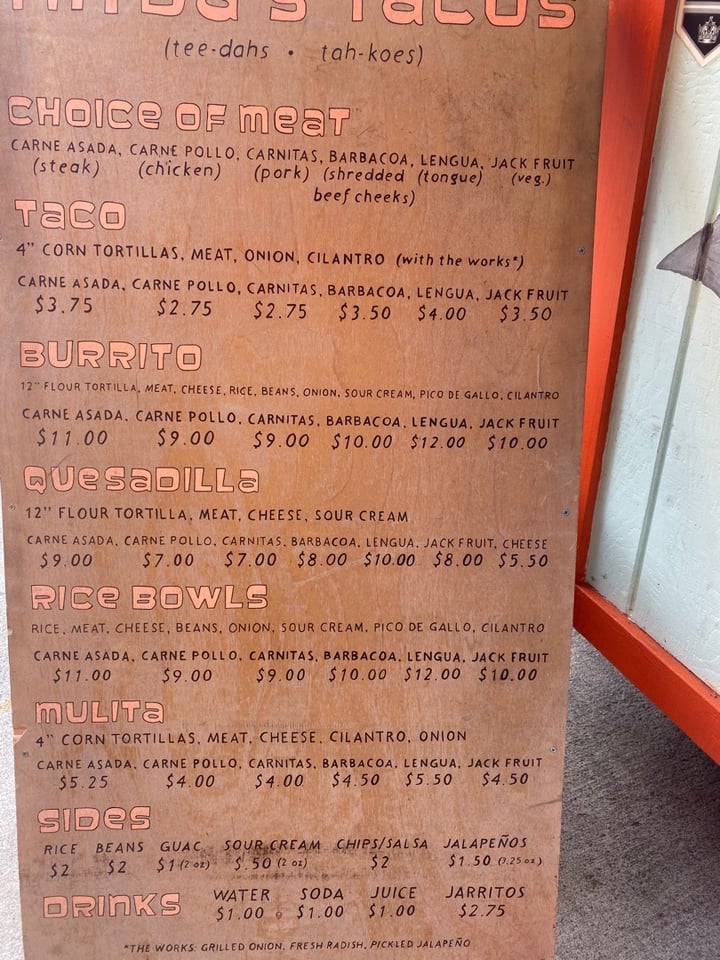 TACOS
(tee-dahs • tah-koes)
CHOICE OF MEAT
CARNE ASADA, CARNE POLLO, CARNITAS, BARBACOA, LENGUA, JACK FRUIT
(steak) (chicken) (pork) (shredded (tongue) (veg.)
beef cheeks)
TACO
4" CORN TORTILLAS, MEAT, ONION, CILANTRO (with the works*)
CARNE ASADA, CARNE POLLO, CARNITAS, BARBACOA, LENGUA, JACK FRUIT
$3.75 $2.75 $2.75 $3.50 $4.00 $3.50
BURRITO
12" FLOUR TORTILLA, MEAT, CHEESE, RICE, BEANS, ONION, SOUR CREAM, PICO DE GALLO, CILANTRO
CARNE ASADA, CARNE POLLO, CARNITAS, BARBACOA, LENGUA, JACK FRUIT
$11.00 $9.00 $9.00 $10.00 $12.00 $10.00
QUESADILLA
12" FLOUR TORTILLA, MEAT, CHEESE, SOUR CREAM
CARNE ASADA, CARNE POLLO, CARNITAS, BARBACOA, LENGUA, JACK FRUIT, CHEESE
$9.00 $7.00 $7.00 $8.00 $10.00 $8.00 $5.50
RICE BOWLS
RICE, MEAT, CHEESE, BEANS, ONION, SOUR CREAM, PICO DE GALLO, CILANTRO
CARNE ASADA, CARNE POLLO, CARNITAS, BARBACOA, LENGUA, JACK FRUIT
$11.00 $9.00 $9.00 $10.00 $12.00 $10.00
MULITA
4" CORN TORTILLAS, MEAT, CHEESE, CILANTRO, ONION
CARNE ASADA, CARNE POLLO, CARNITAS, BARBACOA, LENGUA, JACK FRUIT
$5.25 $4.00 $4.00 $4.50 $5.50 $4.50
SIDES
RICE BEANS GUAC. SOUR CREAM CHIPS/SALSA JALAPEÑOS
$2 $2 $1 (2 oz) $.50 (2 oz) $2 $1.50 (3.25 oz)
DRINKS WATER SODA JUICE JARRITOS
$1.00 $1.00 $1.00 $2.75
*THE WORKS: GRILLED ONION, FRESH RADISH, PICKLED JALAPEÑO